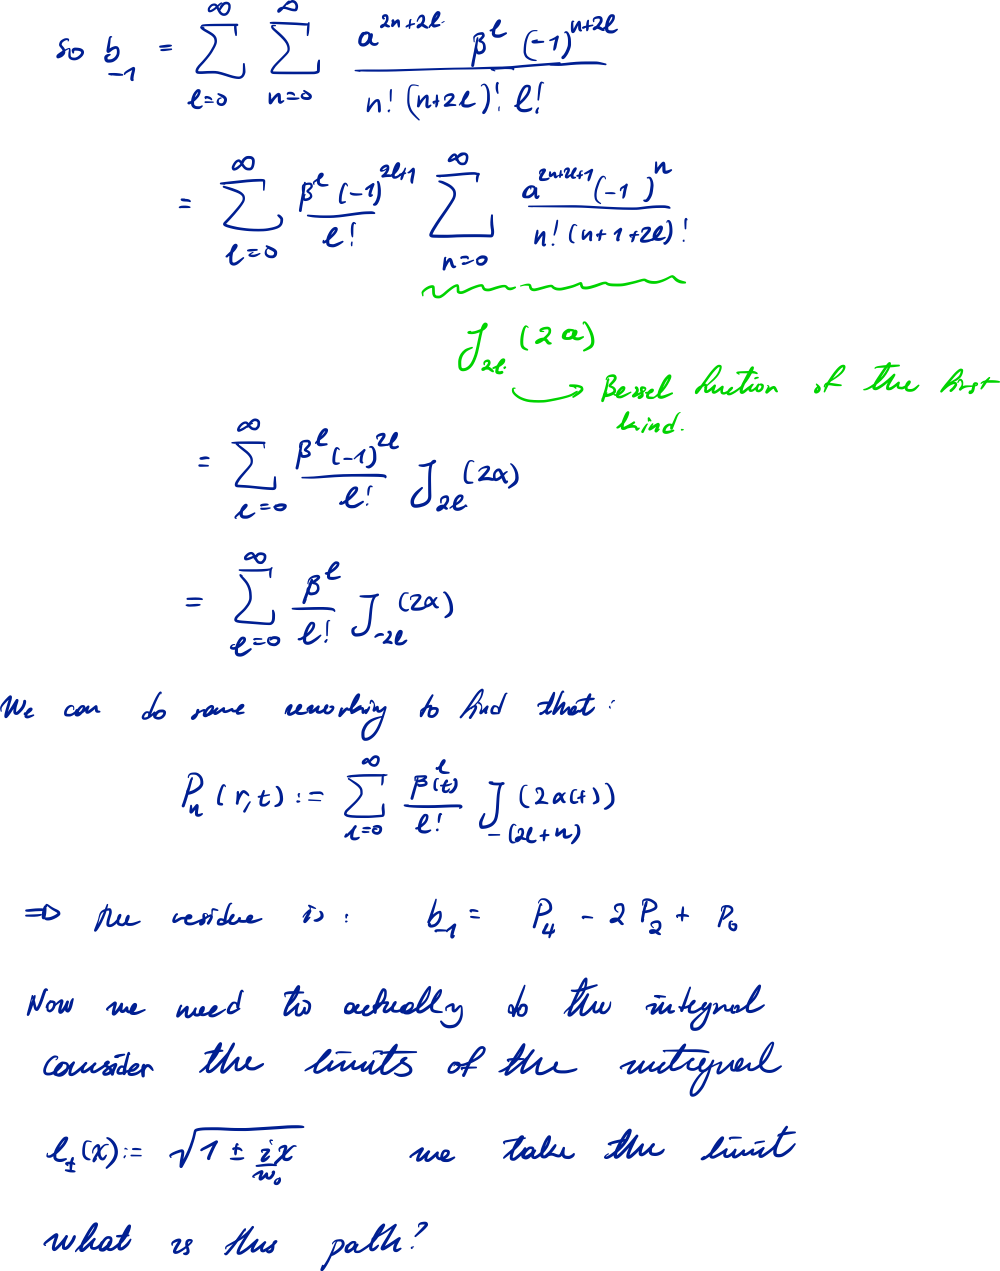 so b_{-1} = \sum_{l=0}^{\infty} \sum_{n=0}^{\infty} \frac{a^{2n+2l} β^l (-1)^{n+2l}}{n! (n+2l)! l!}
= \sum_{l=0}^{\infty} \frac{β^l (-1)^{2l+1}}{l!} \sum_{n=0}^{\infty} \frac{a^{2n+2l+1} (-1)^n}{n! (n+1+2l)!}
J_{2l} (2a)
→ Bessel fuction of the first
kind.
= \sum_{l=0}^{\infty} \frac{β^l (-1)^{2l}}{l!} J_{2l} (2α)
= \sum_{l=0}^{\infty} \frac{β^l}{l!} J_{-2l} (2α)
We can do some reworking to find that:
P_n (r,t) := \sum_{l=0}^{\infty} \frac{β^l(t)}{l!} J_{-(2l+n)} (2α(t))
⇒ the residue is: b_{-1} = P_4 - 2 P_2 + P_0
Now we need to actually do the integral
consider the limits of the integral
l_±(x) := \sqrt{1 ± \frac{ix}{w_0}} we take the limit
what is this path?